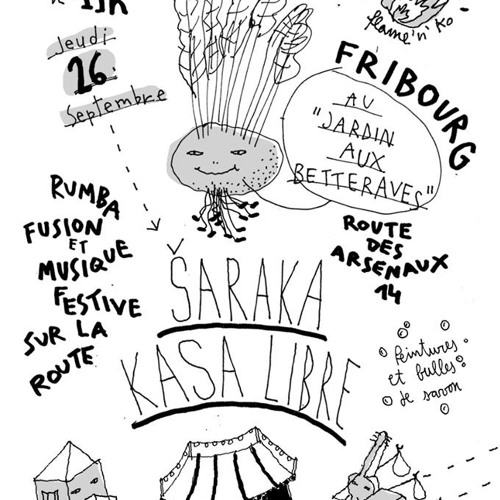 Jeudi
26
Septembre
flame'n'Ko
FRIBOURG
AU
"JARDIN
AUX
BETTERAVES"
ROUTE
DES
ARSENAUX
14
RUMBA
FUSION
ET
MUSIQUE
FESTIVE
SUR LA
ROUTE
ŠARAKA
KASA LIBRE
Peintures
et bulles
de savon